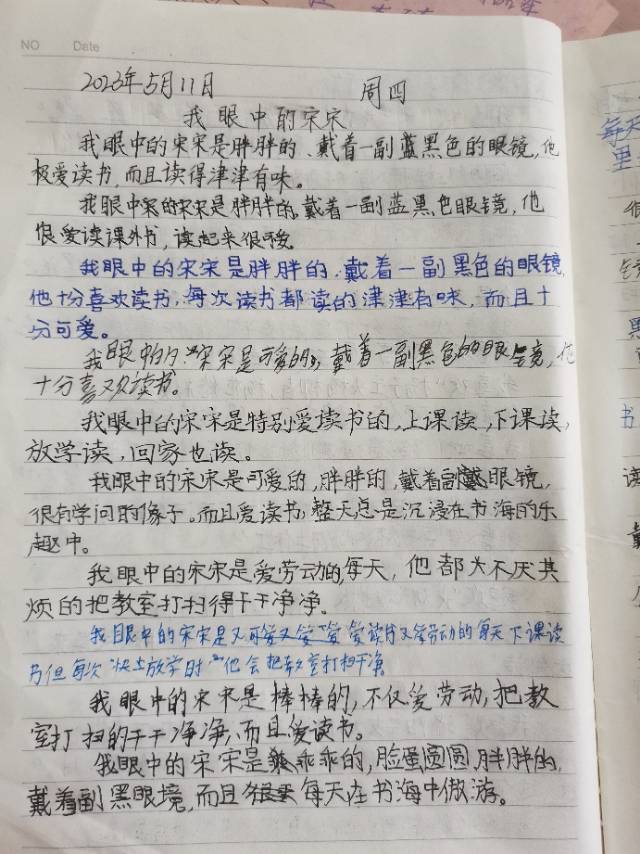 NO Date
2023年5月11日 周四
我眼中的宋宋
我眼中的宋宋是胖胖的、戴着一副蓝黑色的眼镜,他
极爱读书,而且读得津津有味。
我眼中的宋宋是胖胖的,戴着一副蓝黑色眼镜,他
很爱读课外书,读起来很
我眼中的宋宋是胖胖的,戴着一副黑色的眼镜
他十分喜欢读书,每次读书都读的津津有味,而且十
分可爱。
我眼中的宋宋是可爱的,戴着一副黑色的眼镜,他
十分喜欢读书。
我眼中的宋宋是特别爱读书的,上课读,下课读,
放学读,回家也读。
我眼中的宋宋是可爱的,胖胖的,戴着副眼镜,
很有学问的像子。而且爱读书,整天总是沉浸在书海的乐
趣中。
我眼中的宋宋是爱劳动的,每天,他都不厌其
烦的把教室打扫得干干净净。
我眼中的宋宋是又可爱又爱读书又爱劳动的每天下课读
书但每次快放学时他会把教室打扫干净
我眼中的宋宋是棒棒的,不仅爱劳动,把教
室打扫的干干净净,而且爱读书。
我眼中的宋宋是乖乖的,脸蛋圆圆,胖胖的,
戴着副黑眼境,而且每天在书海中傲游。
每天
里
很
镜
黑
书
读